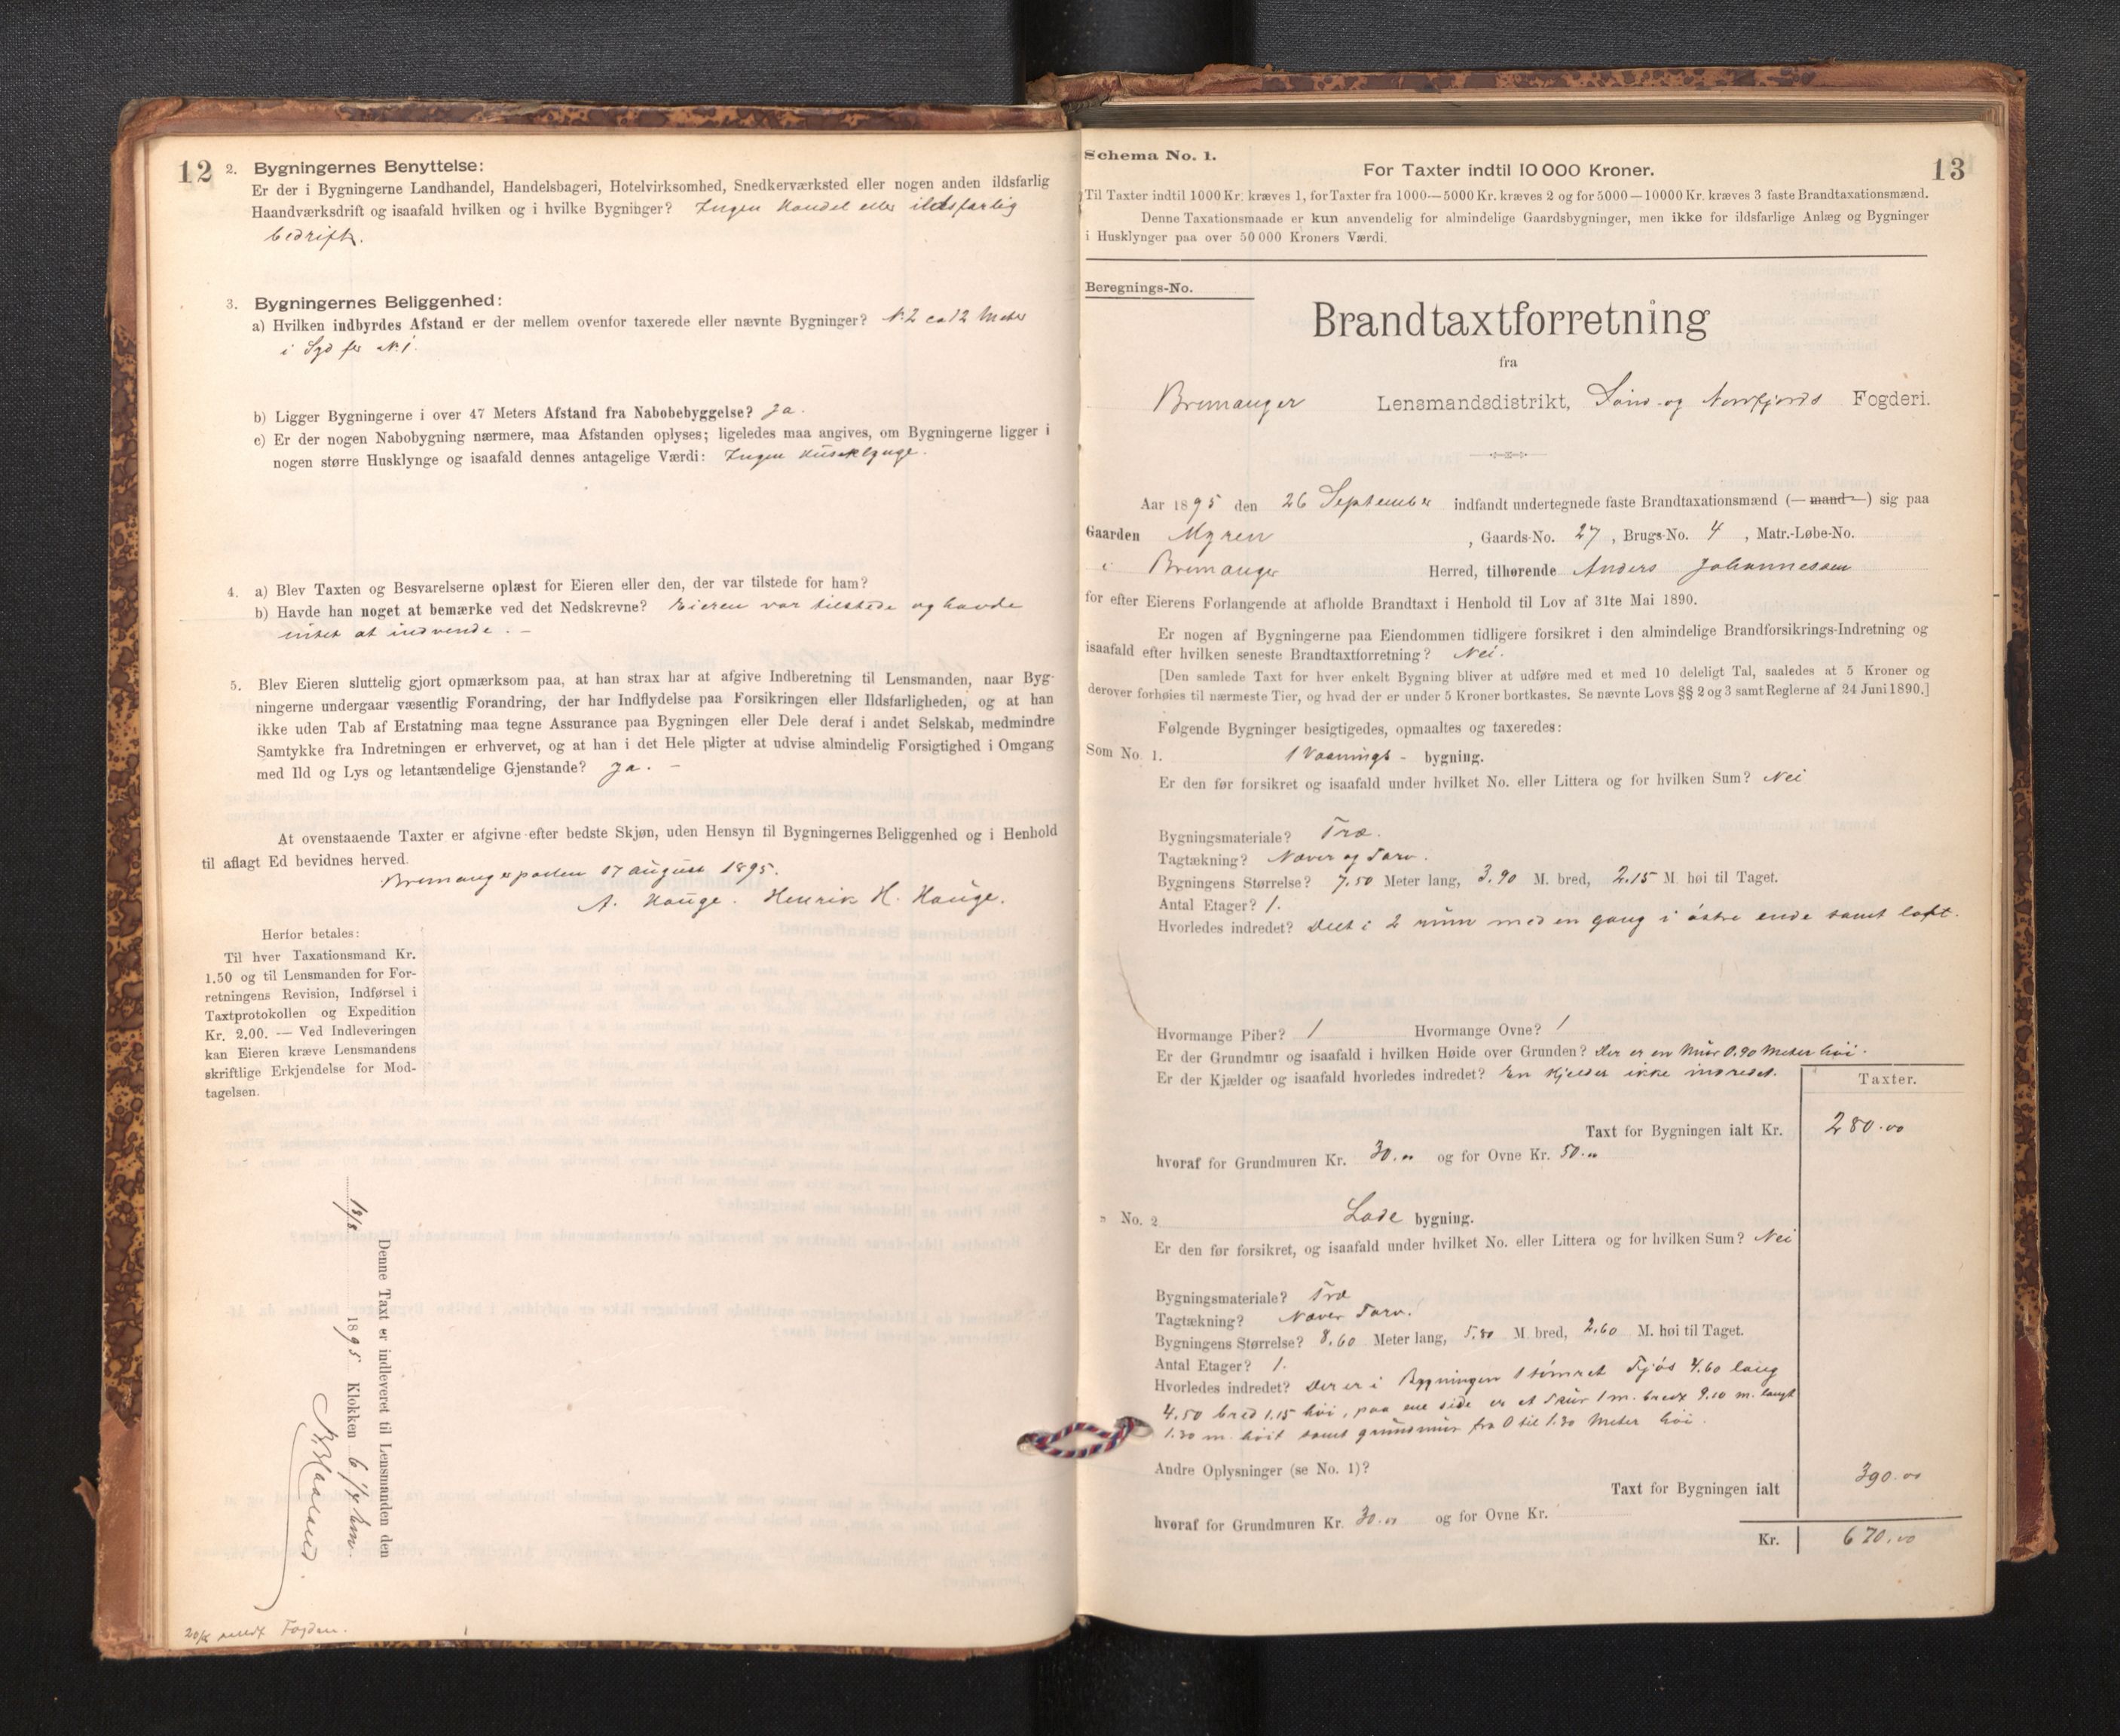 12
2. Bygningernes Benyttelse:
Er der i Bygningerne Landhandel, Handelsbageri, Hotelvirksomhed, Snedkerværksted eller nogen anden ildsfarlig
Haandværksdrift og isaafald hvilken og i hvilke Bygninger? Ingen Handel eller ildsfarlig
bedrift.
3. Bygningernes Beliggenhed:
a) Hvilken indbyrdes Afstand er der mellem ovenfor taxerede eller nævnte Bygninger? N. 2 ca 12 Meter
i Syd for N. 1.
b) Ligger Bygningerne i over 47 Meters Afstand fra Nabobebyggelse? Ja.
c) Er der nogen Nabobygning nærmere, maa Afstanden oplyses; ligeledes maa angives, om Bygningerne ligger i
nogen større Husklynge og isaafald dennes antagelige Værdi: Ingen Husklynge.
4. a) Blev Taxten og Besvarelserne oplæst for Eieren eller den, der var tilstede for ham?
b) Havde han noget at bemærke ved det Nedskrevne? Eieren var tilstede og havde
intet at indvende. —
5. Blev Eieren sluttelig gjort opmærksom paa, at han strax har at afgive Indberetning til Lensmanden, naar Byg-
ningerne undergaar væsentlig Forandring, der har Indflydelse paa Forsikringen eller Ildsfarligheden, og at han
ikke uden Tab af Erstatning maa tegne Assurance paa Bygningen eller Dele deraf i andet Selskab, medmindre
Samtykke fra Indretningen er erhvervet, og at han i det Hele pligter at udvise almindelig Forsigtighed i Omgang
med Ild og Lys og letantændelige Gjenstande? Ja. —
At ovenstaaende Taxter er afgivne efter bedste Skjøn, uden Hensyn til Bygningernes Beliggenhed og i Henhold
til aflagt Ed bevidnes herved.
Bremangerpollen 17 august 1895.
A. Hauge. Henrik H. Hauge.
Herfor betales:
Til hver Taxationsmand Kr.
1.50 og til Lensmanden for For-
retningens Revision, Indførsel i
Taxtprotokollen og Expedition
Kr. 2.00. — Ved Indleveringen
kan Eieren kræve Lensmandens
skriftlige Erkjendelse for Mod-
tagelsen.
Denne Taxt er indleveret til Lensmanden den
18/8 1895 Klokken 6
20/8 sendt Fogden.
Schema No. 1.
For Taxter indtil 10 000 Kroner.
13
Til Taxter indtil 1000 Kr. kræves 1, for Taxter fra 1000—5000 Kr. kræves 2 og for 5000—10000 Kr. kræves 3 faste Brandtaxationsmænd.
Denne Taxationsmaade er kun anvendelig for almindelige Gaardsbygninger, men ikke for ildsfarlige Anlæg og Bygninger
i Husklynger paa over 50 000 Kroners Værdi.
Beregnings-No.
Brandtaxtforretning
fra
Bremanger Lensmandsdistrikt, Sønd- og Nordfjords Fogderi.
Aar 1895 den 26 September indfandt undertegnede faste Brandtaxationsmænd (— mand —) sig paa
Gaarden Myren, Gaards-No. 27, Brugs-No. 4, Matr.-Løbe-No.
i Bremanger Herred, tilhørende Anders Johannessen
for efter Eierens Forlangende at afholde Brandtaxt i Henhold til Lov af 31te Mai 1890.
Er nogen af Bygningerne paa Eiendommen tidligere forsikret i den almindelige Brandforsikrings-Indretning og
isaafald efter hvilken seneste Brandtaxtforretning? Nei.
[Den samlede Taxt for hver enkelt Bygning bliver at udføre med et med 10 deleligt Tal, saaledes at 5 Kroner og
derover forhøies til nærmeste Tier, og hvad der er under 5 Kroner bortkastes. Se nævnte Lovs §§ 2 og 3 samt Reglerne af 24 Juni 1890.]
Følgende Bygninger besigtigedes, opmaaltes og taxeredes:
Som No. 1. 1 Vaanings- bygning.
Er den før forsikret og isaafald under hvilket No. eller Littera og for hvilken Sum? Nei
Bygningsmateriale? Træ.
Tagtækning? Næver og Tørv.
Bygningens Størrelse? 7.50 Meter lang, 3.90 M. bred, 2.15 M. høi til Taget.
Antal Etager? 1.
Hvorledes indredet? Delt i 2 rum med en gang i østre ende samt loft.
Hvormange Piber? 1 Hvormange Ovne? 1
Er der Grundmur og isaafald i hvilken Høide over Grunden? Der er en Mur 0.90 Meter høi.
Er der Kjælder og isaafald hvorledes indredet? En Kjelder ikke indredet.
Taxter.
Taxt for Bygningen ialt Kr. 280.00
hvoraf for Grundmuren Kr. 30.00 og for Ovne Kr. 50.00
" No. 2 Lade bygning.
Er den før forsikret, og isaafald under hvilket No. eller Littera og for hvilken Sum? Nei
Bygningsmateriale? Træ
Tagtækning? Næver Tørv.
Bygningens Størrelse? 8.60 Meter lang, 5.80 M. bred, 2.60 M. høi til Taget.
Antal Etager? 1.
Hvorledes indredet? Der er i Bygningen 1 tømret Fjøs 4.60 lang
4.50 bred 1.15 høi, paa ene side er et Skur 1 m. bredt 9.10 m. langt
1.30 m. høit samt grundmur fra 0 til 1.30 Meter høi.
Andre Oplysninger (se No. 1)?
Taxt for Bygningen ialt 390.00
hvoraf for Grundmuren Kr. 30.00 og for Ovne Kr.
Kr. 670.00